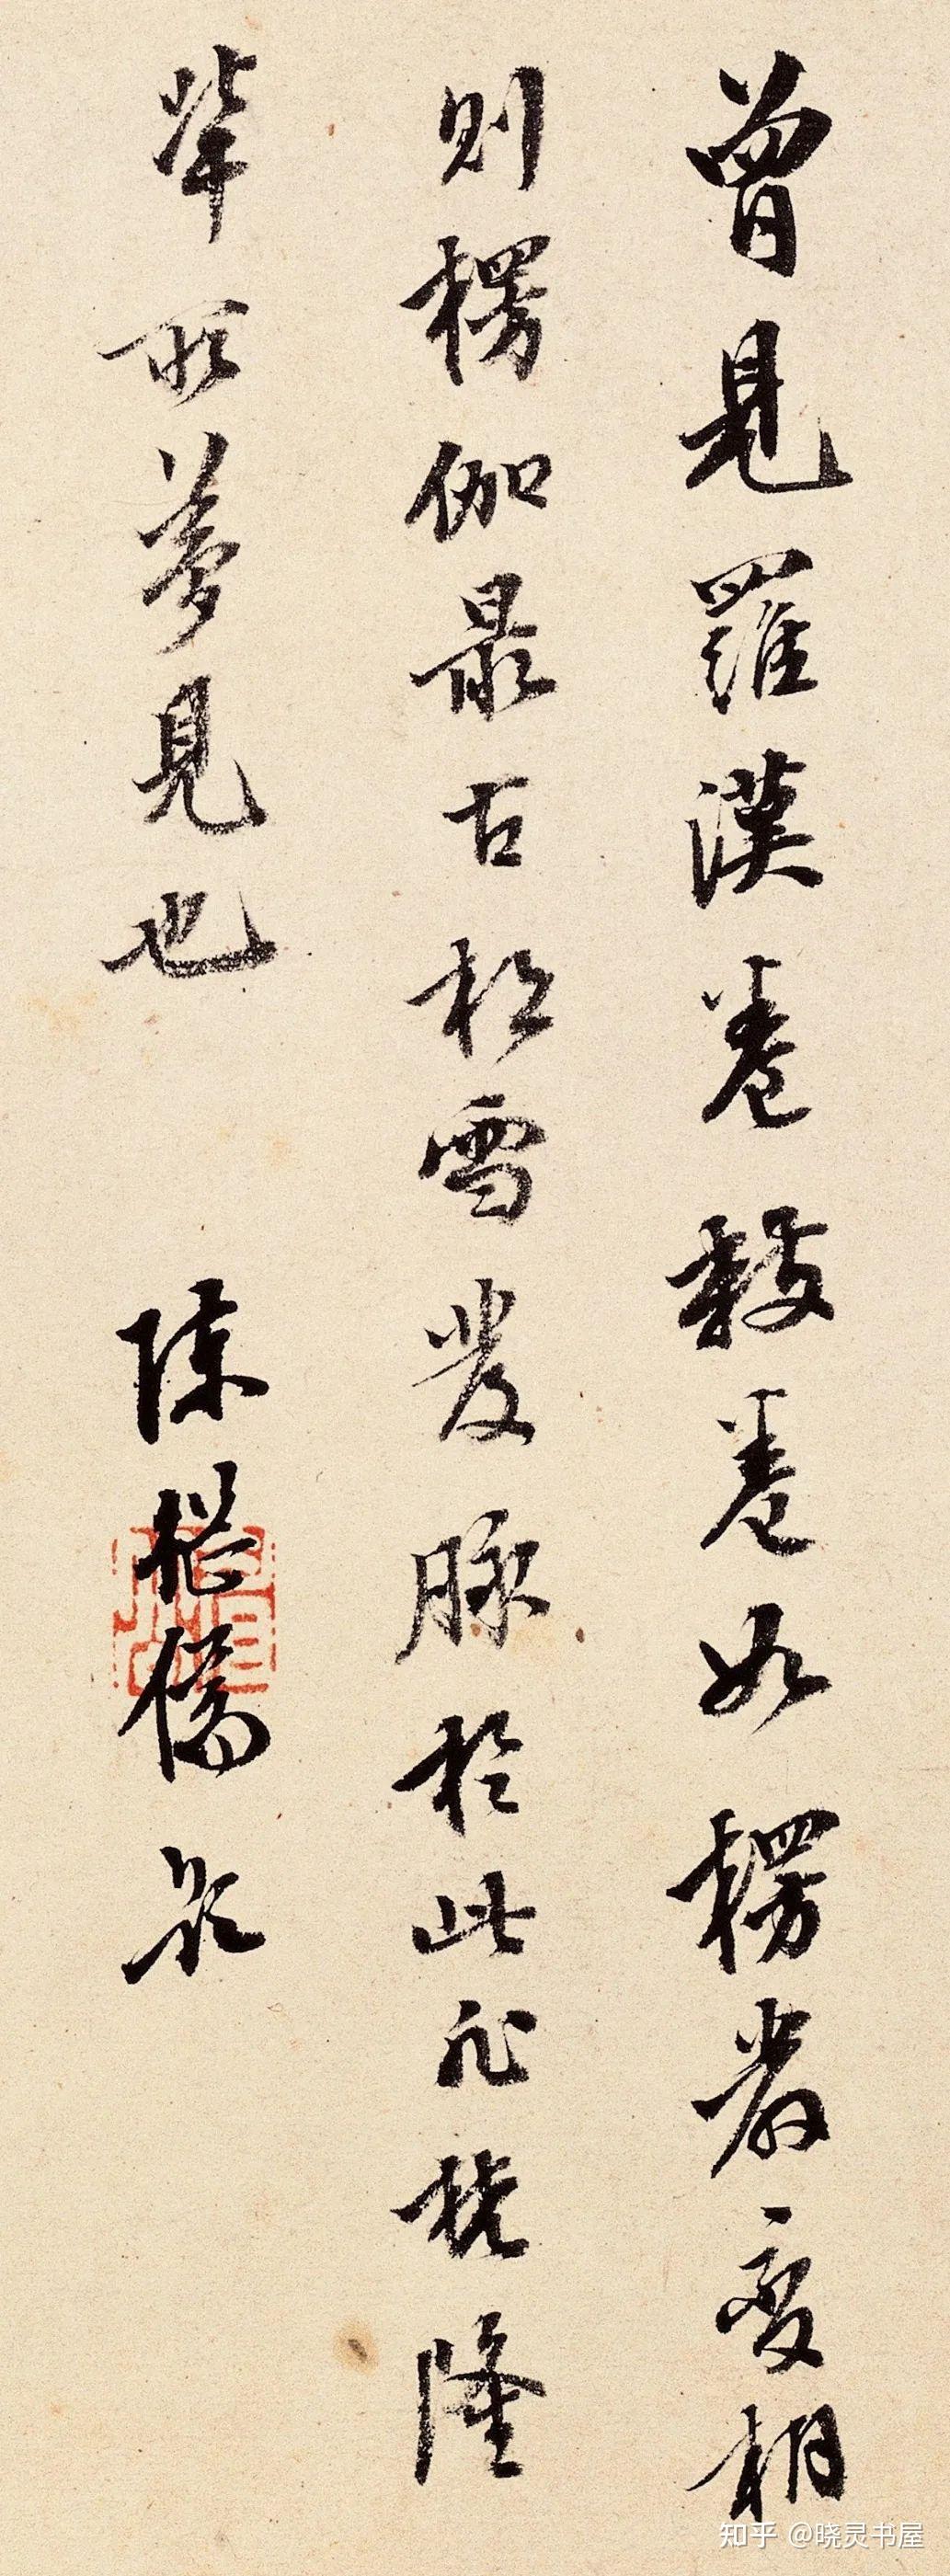 曾見羅漢卷數卷如楞嚴變相
則楞伽最古松雪發脉於此非梵隆
輩所夢見也 陳繼儒
知乎 @晓灵书屋